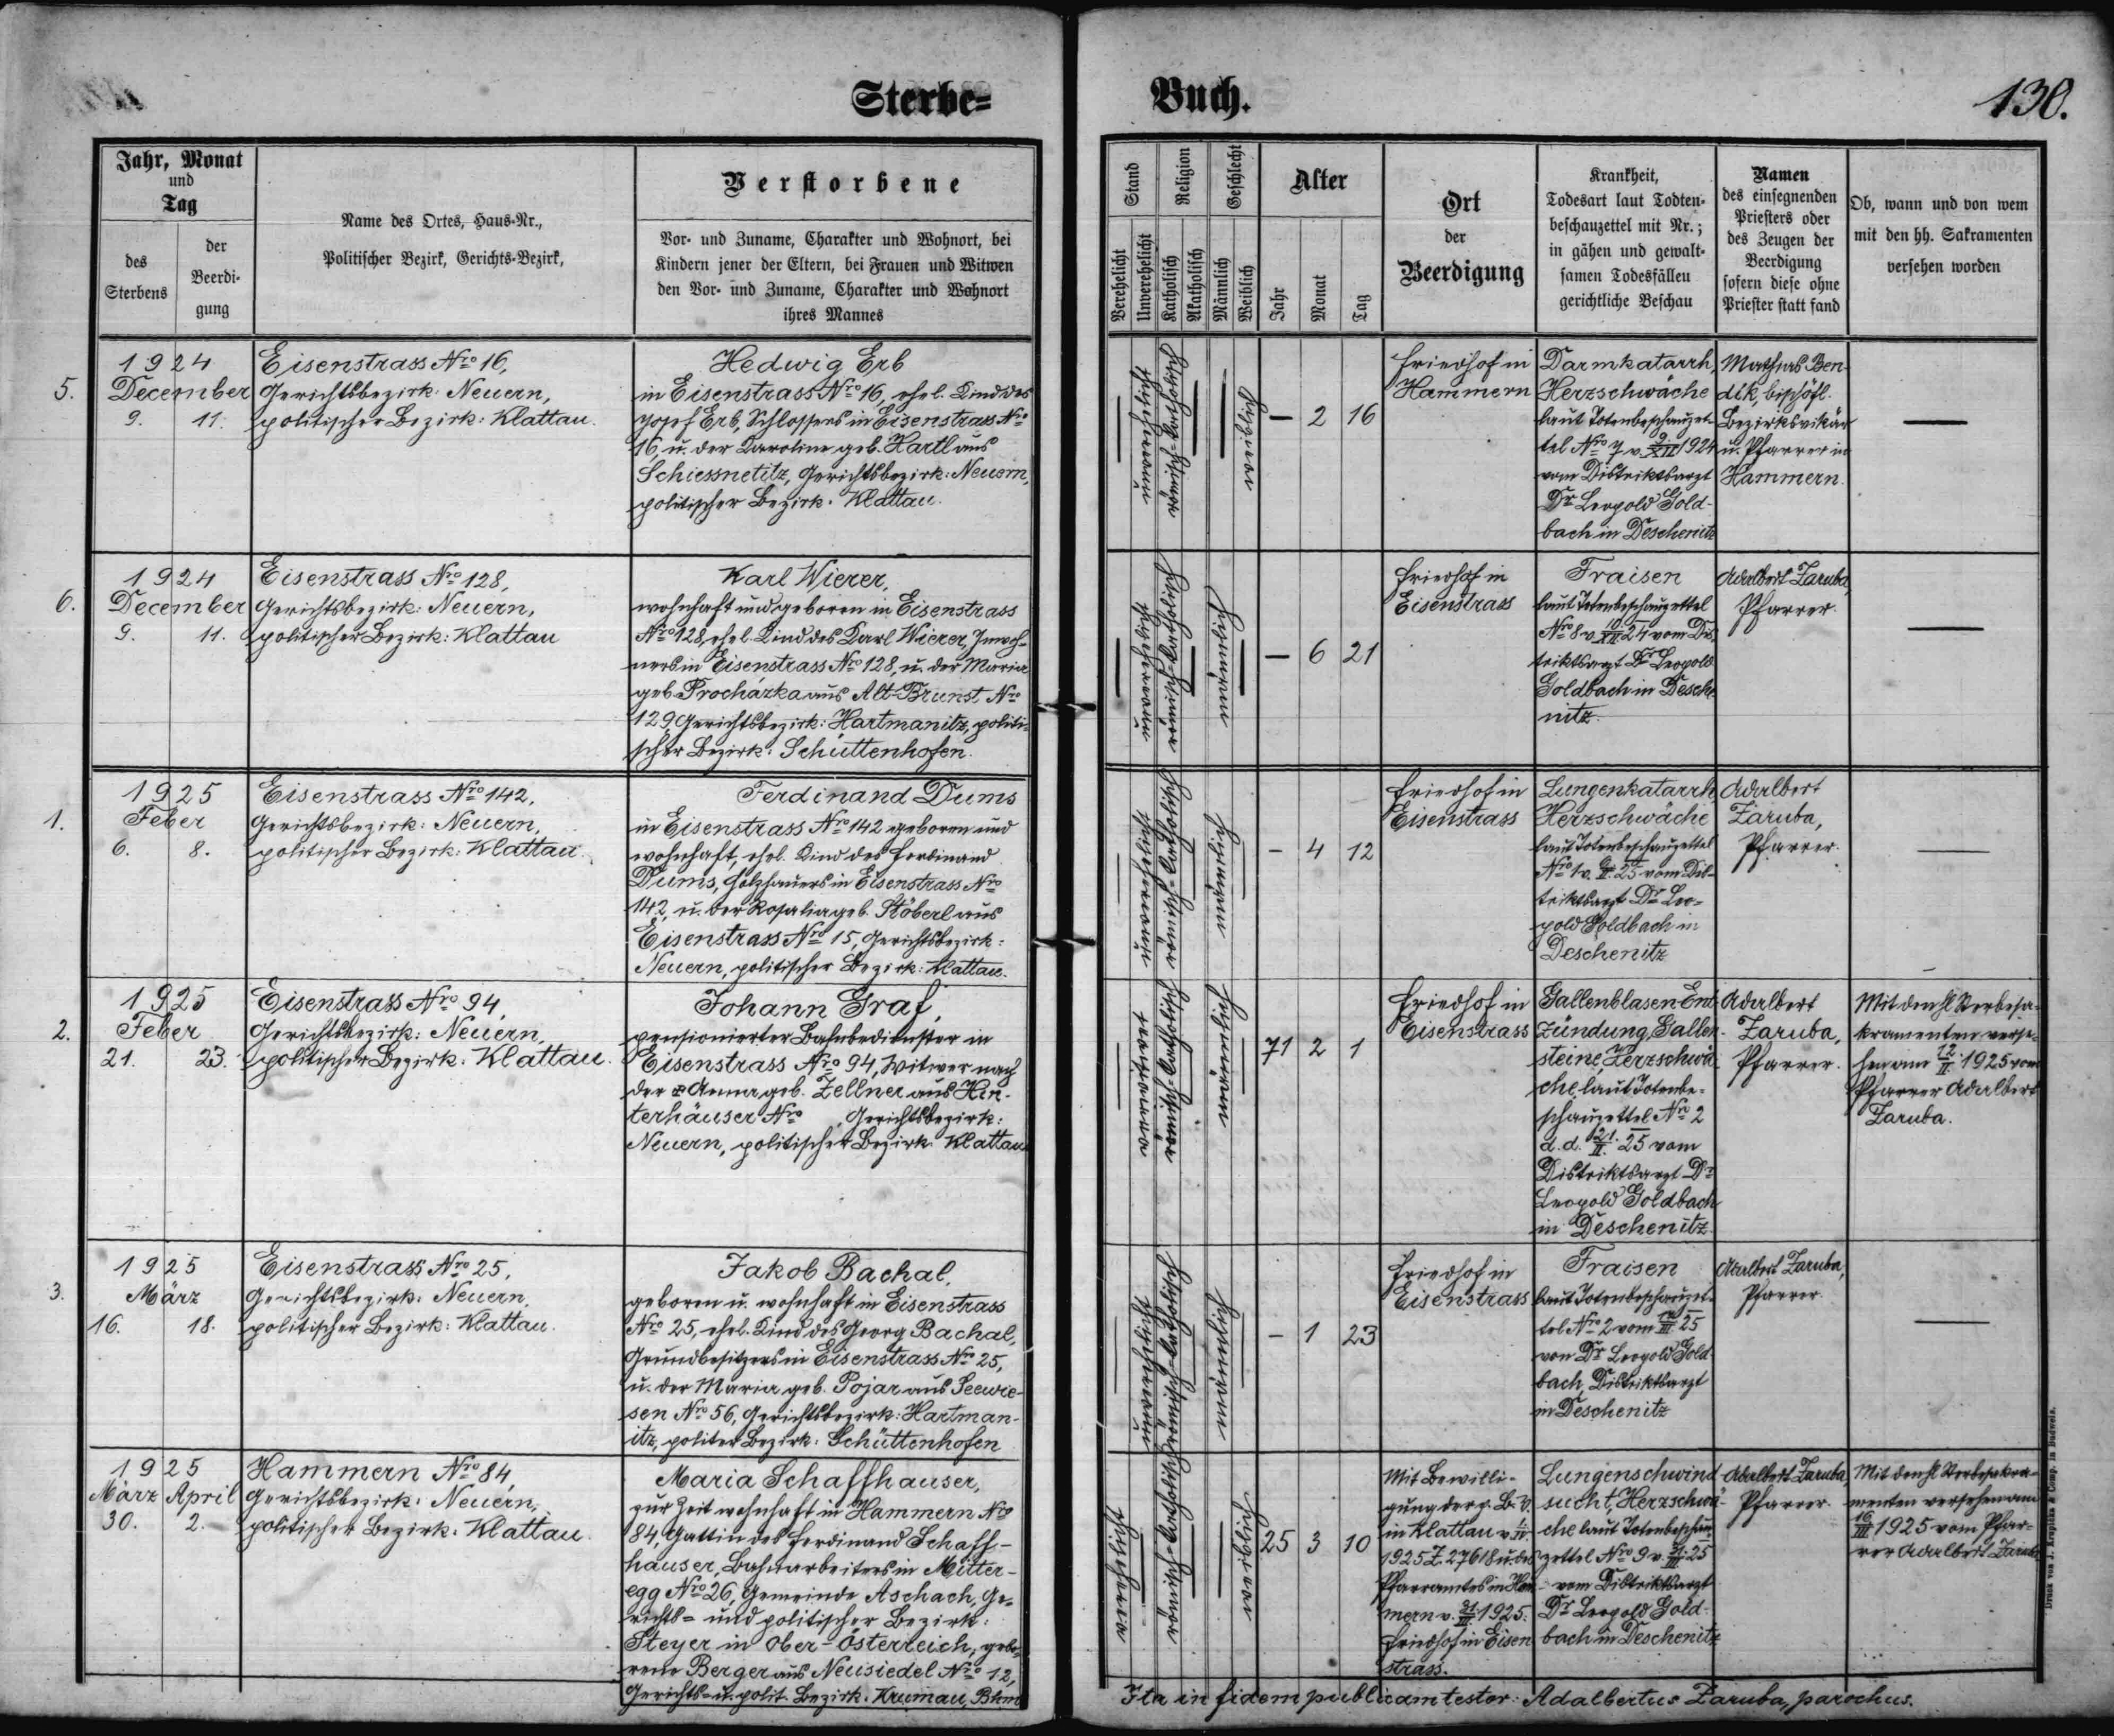 Sterbe=
Buch.
130.
Jahr, Monat
und
Tag
des
Sterbens
der
Beerdi-
gung
Name des Ortes, Haus-Nr.,
Politischer Bezirk, Gerichts-Bezirk,
Verstorbene
Vor- und Zuname, Charakter und Wohnort, bei
Kindern jener der Eltern, bei Frauen und Witwen
den Vor- und Zuname, Charakter und Wohnort
ihres Mannes
Stand
Verehelicht
Unverehelicht
Religion
Katholisch
Akatholisch
Geschlecht
Männlich
Weiblich
Alter
Jahr
Monat
Tag
Ort
der
Beerdigung
Krankheit,
Todesart laut Todten-
beschauzettel mit Nr.;
in gähen und gewalt-
samen Todesfällen
gerichtliche Beschau
Namen
des einsegnenden
Priesters oder
des Zeugen der
Beerdigung
sofern diese ohne
Priester statt fand
Ob, wann und von wem
mit den hh. Sakramenten
versehen worden
5.
1924
December
9. 11.
Eisenstrass Nro 16,
Gerichtsbezirk: Neuern,
politischer Bezirk: Klattau.
Hedwig Erb
in Eisenstrass Nro 16, ehel. Kind des
Josef Erb, Schlossers in Eisenstrass Nro
16, u. der Karoline geb. Hartl aus
Schiessnetitz, Gerichtsbezirk: Neuern,
politischer Bezirk: Klattau.
unverehelicht
römisch-katholisch
weiblich
— 2 16
Friedhof in
Hammern
Darmkatarrh,
Herzschwäche
laut Totenbeschauzet-
tel Nro 7 v. 9/XII 1924
vom Distriktsarzt
Dr Leopold Gold-
bach in Deschenitz
Mathias Ben-
dik, bischöfl.
Bezirksvikär
u. Pfarrer in
Hammern.
—
6.
1924
December
9. 11.
Eisenstrass Nro 128,
Gerichtsbezirk: Neuern,
politischer Bezirk: Klattau
Karl Wierer,
wohnhaft und geboren in Eisenstrass
Nro 128, ehel. Kind des Karl Wierer, Inwoh-
ners in Eisenstrass Nro 128, u. der Maria
geb. Procházka aus Alt-Brunst Nro
129, Gerichtsbezirk: Hartmanitz, politi-
scher Bezirk: Schüttenhofen.
unverehelicht
römisch-katholisch
männlich
— 6 21
Friedhof in
Eisenstrass
Fraisen
laut Totenbeschauzettel
Nro 8 v. 10/XII 24 vom Dis-
triktsarzt Dr Leopold
Goldbach in Desche-
nitz.
Adalbert Zaruba,
Pfarrer.
—
1.
1925
Feber
6. 8.
Eisenstrass Nro 142,
Gerichtsbezirk: Neuern,
politischer Bezirk: Klattau.
Ferdinand Dums
in Eisenstrass Nro 142 geboren und
wohnhaft, ehel. Kind des Ferdinand
Dums, Holzhauers in Eisenstrass Nro
142, u. der Rosalia geb. Stöberl aus
Eisenstrass Nro 15, Gerichtsbezirk:
Neuern, politischer Bezirk: Klattau.
unverehelicht
römisch-katholisch
männlich
— 4 12
Friedhof in
Eisenstrass
Lungenkatarrh,
Herzschwäche
laut Totenbeschauzettel
Nro 1 v. II. 25 vom Dis-
triktsarzt Dr Leo-
pold Goldbach in
Deschenitz
Adalbert
Zaruba,
Pfarrer.
—
2.
1925
Feber
21. 23.
Eisenstrass Nro 94,
Gerichtsbezirk: Neuern,
politischer Bezirk: Klattau.
Johann Graf,
pensionierter Bahnbediensteter in
Eisenstrass Nro 94, Witwer nach
der Anna geb. Zellner aus Hin-
terhäuser Nro , Gerichtsbezirk:
Neuern, politischer Bezirk: Klattau
verwitwet
römisch-katholisch
männlich
71 2 1
Friedhof in
Eisenstrass
Gallenblasen Ent-
zündung, Gallen-
steine, Herzschwä-
che laut Totenbe-
schauzettel Nro 2
d. d. 21./II. 25 vom
Distriktsarzt Dr
Leopold Goldbach
in Deschenitz.
Adalbert
Zaruba,
Pfarrer.
Mit den hl Sterbesa-
kramenten verse-
hen am 12/II 1925 vom
Pfarrer Adalbert
Zaruba.
3.
1925
März
16. 18.
Eisenstrass Nro 25,
Gerichtsbezirk: Neuern,
politischer Bezirk: Klattau.
Jakob Bachal,
geboren u. wohnhaft in Eisenstrass
Nro 25, ehel. Kind des Georg Bachal,
Grundbesitzers in Eisenstrass Nro 25,
u. der Maria geb. Pojar aus Seewie-
sen Nro 56, Gerichtsbezirk: Hartman-
itz, politer Bezirk: Schüttenhofen
unverehelicht
römisch-katholisch
männlich
— 1 23
Friedhof in
Eisenstrass
Fraisen
laut Totenbeschauzet-
tel Nro 2 vom 17/III. 25
von Dr Leopold Gold-
bach, Distriktsarzt
in Deschenitz
Adalbert Zaruba,
Pfarrer.
—
1925
März April
30. 2.
Hammern Nro 84,
Gerichtsbezirk: Neuern,
politischer Bezirk: Klattau.
Maria Schaffhauser,
zur Zeit wohnhaft in Hammern Nro
84, Gattin des Ferdinand Schaff-
hauser, Bahnarbeiters in Mitter-
egg Nro 26, Gemeinde Aschach, Ge-
richts- und politischer Bezirk:
Steyer in Ober-Österreich, gebo-
rene Berger aus Neusiedel Nro 12,
Gerichts- u. polit. Bezirk: Krumau, Bhm
verehelicht
römisch-katholisch
weiblich
25 3 10
Mit Bewilli-
gung der p. B. V.
in Klattau v. 1/IV
1925 Z. 27618 u. des
Pfarramtes in Ham-
mern v. 31/III 1925.
Friedhof in Eisen-
strass.
Lungenschwind-
sucht, Herzschwä-
che laut Totenbeschau-
zettel Nro 9 v. 31/III. 25
vom Distriktsarzt
Dr Leopold Gold-
bach in Deschenitz
Adalbert Zaruba,
Pfarrer.
Mit den hl Sterbesakra-
menten versehen am
16/III 1925 vom Pfar-
rer Adalbert Zaruba
Ita in fidem publicam testor: Adalbertus Zaruba, parochus.
Druck von J. Krupička & Comp. in Budweis.